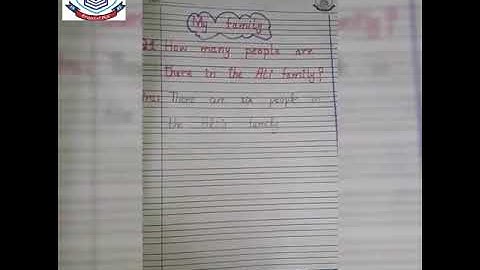 My family
How many people are
there in the Ali family?
Ans: There are six people in
the Ali's family